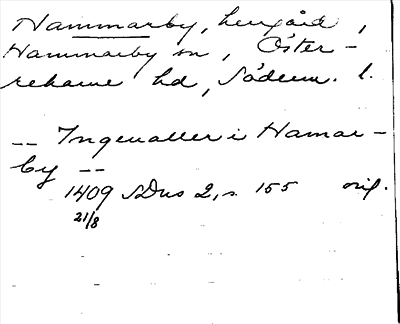 Hammarby, herrgård,
Hammarby sn, Öster-
rekarne hd, Söderm. l.
-- Ingeualler i Hamar-
by --
1409 SDns 2, s. 155 orig.
21/8